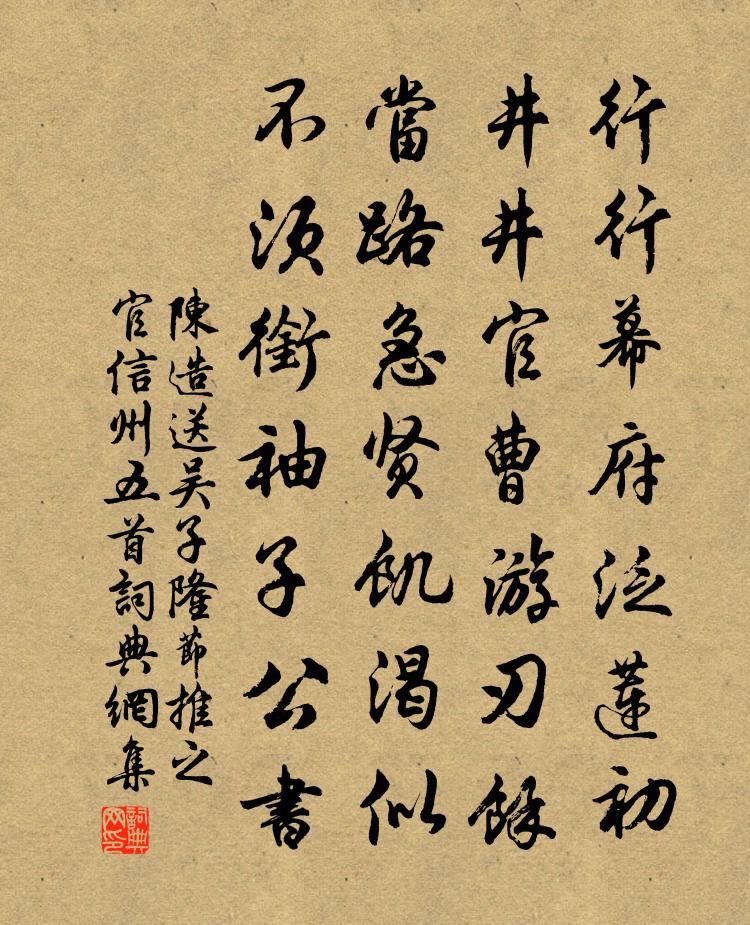 行行幕府泛蓮初
井井官曹游刃餘
當路急贤飢渴似
不須銜袖子公書
陳造送吴子隆節推之
官信州五首詞典網集
詞典
网印